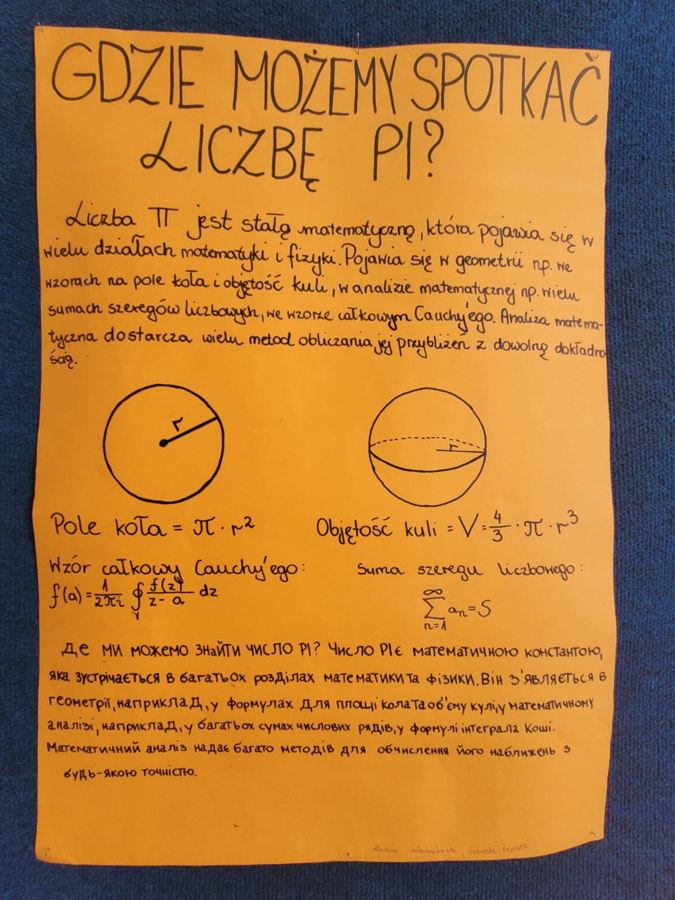 GDZIE MOŻEMY SPOTKAČ
LICZBĘ PI?
Liczba π jest stałą matematyczną, która pojawia się w
wielu działach matematyki i fizyki. Pojawia się w geometrii np. we
wzorach na pole koła i objętość kuli, w analizie matematycznej np. wielu
sumach szeregów liczbowych, we wzorze całkowym Cauchy'ego. Analiza matema-
tyczna dostarcza wielu metod obliczania jej przybliżeń z dowolną dokładno
ścią.
r
r
Pole koła = π · r²
Objętość kuli = V = 4/3 · π · r³
Wzór całkowy Cauchy'ego:
f(a) = 1/2πi ∮γ f(z)/z-a dz
Suma szeregu liczbowego:
∞ ∑ n=1 aₙ = S
Де ми можемо знайти число PI? Число PI є математичною константою,
яка зустрічається в багатьох розділах математики та фізики. Він з'являється в
геометрії, наприклад, у формулах для площі кола та об'єму кулі, у математичному
аналізі, наприклад, у багатьох сумах числових рядів, у формулі інтеграла Коші.
Математичний аналіз надає багато методів для обчислення його наближень з
будь-якою точністю.